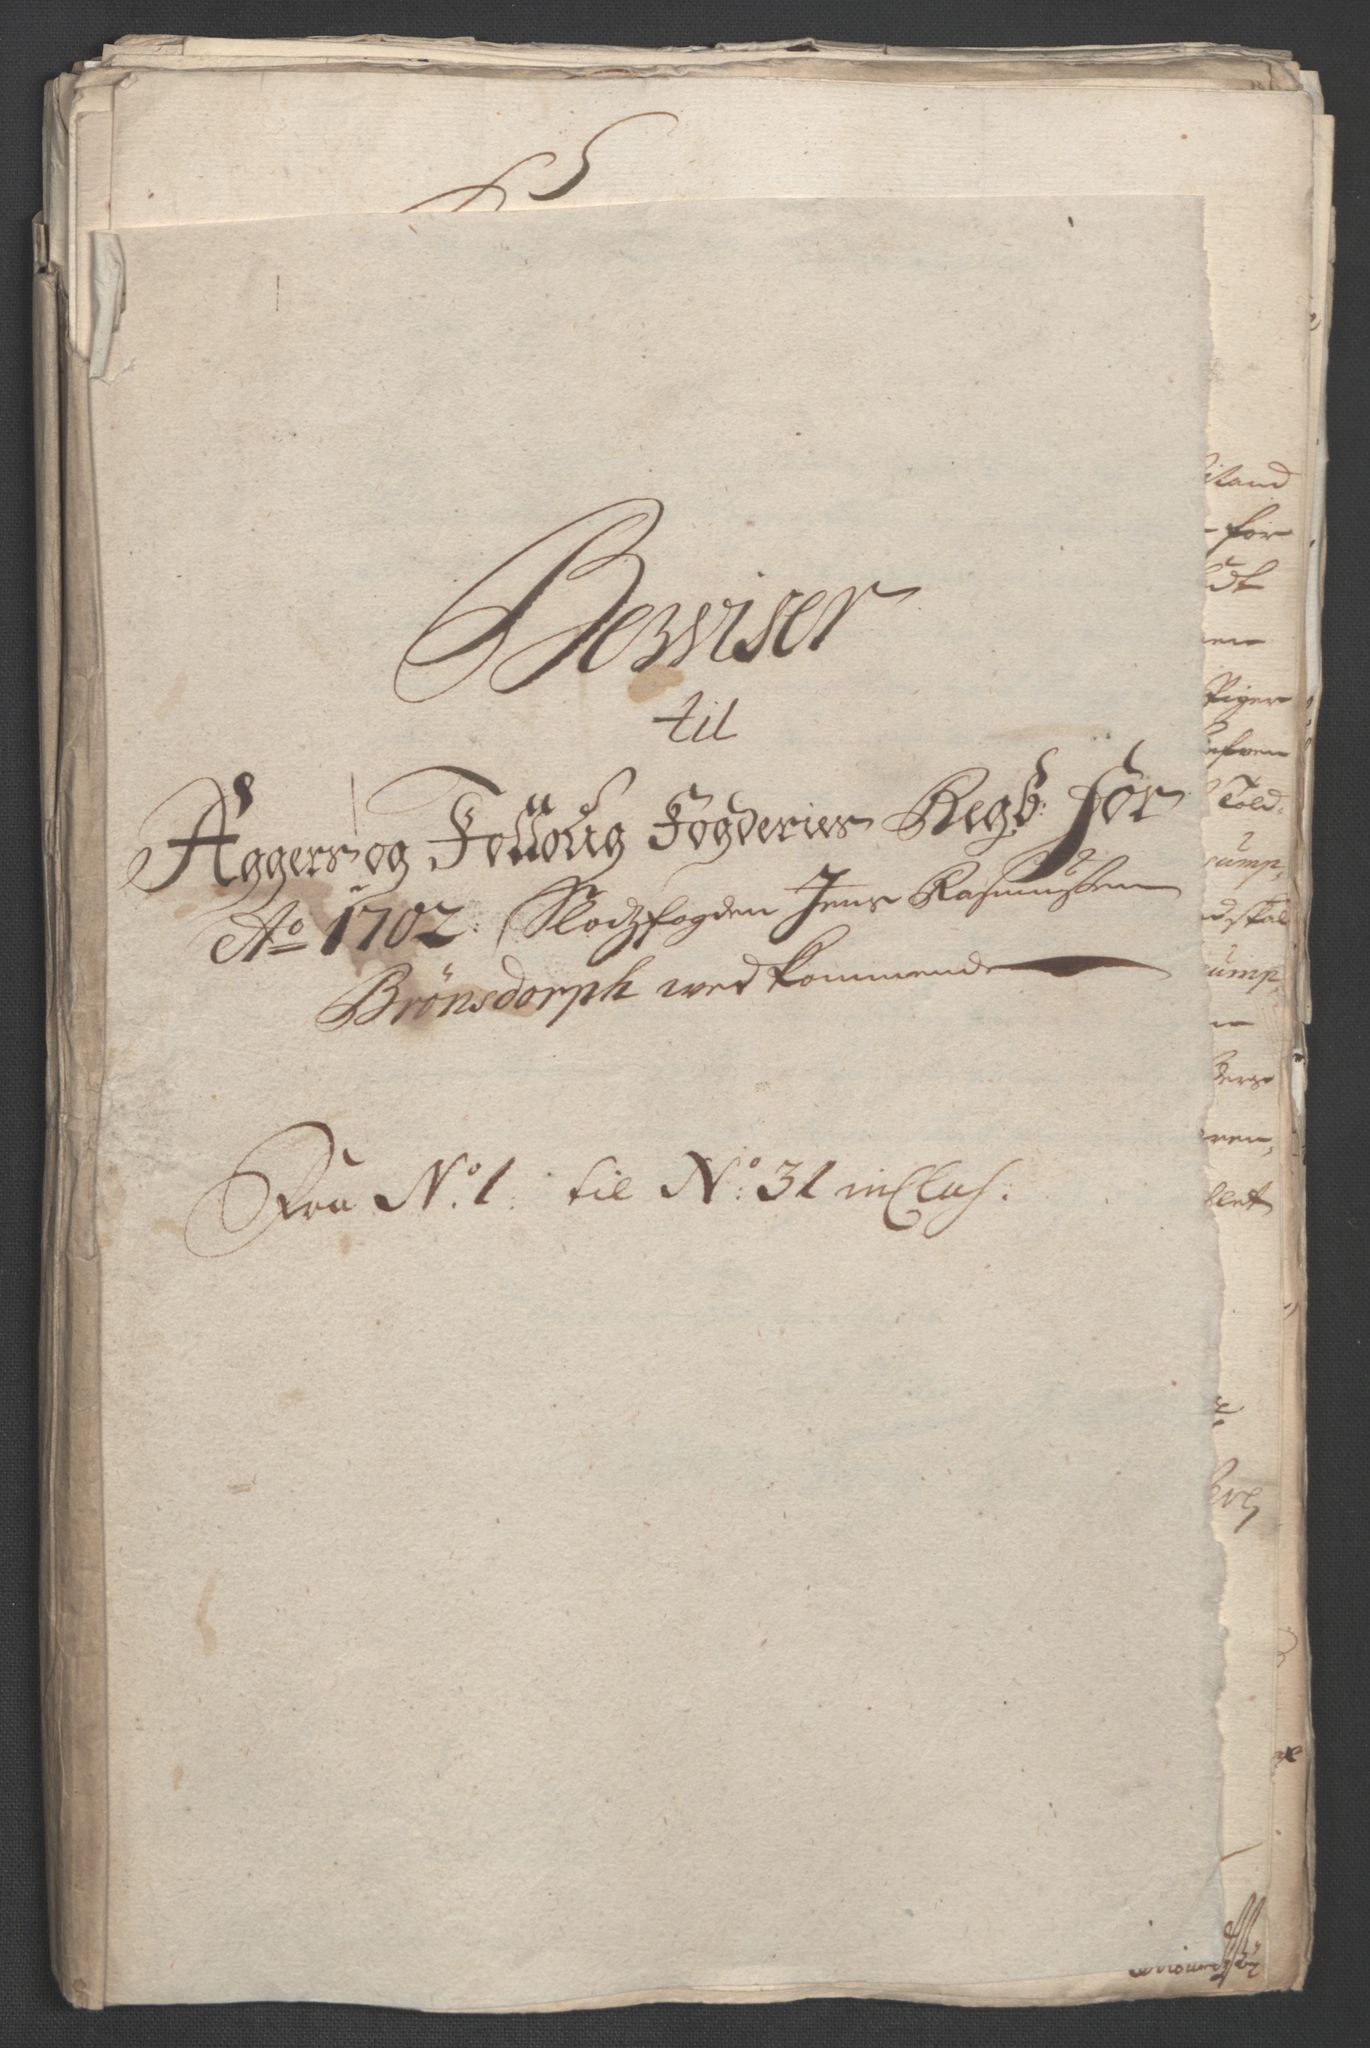 Bewiser
til
Aggers og Folloug Fogderies Regb: for
Ao 1702. Slotzfogden Jens Rasmussen
Brönsdorph wedkommende
Fra No. 1. til No: 31 inclus:
for
Told